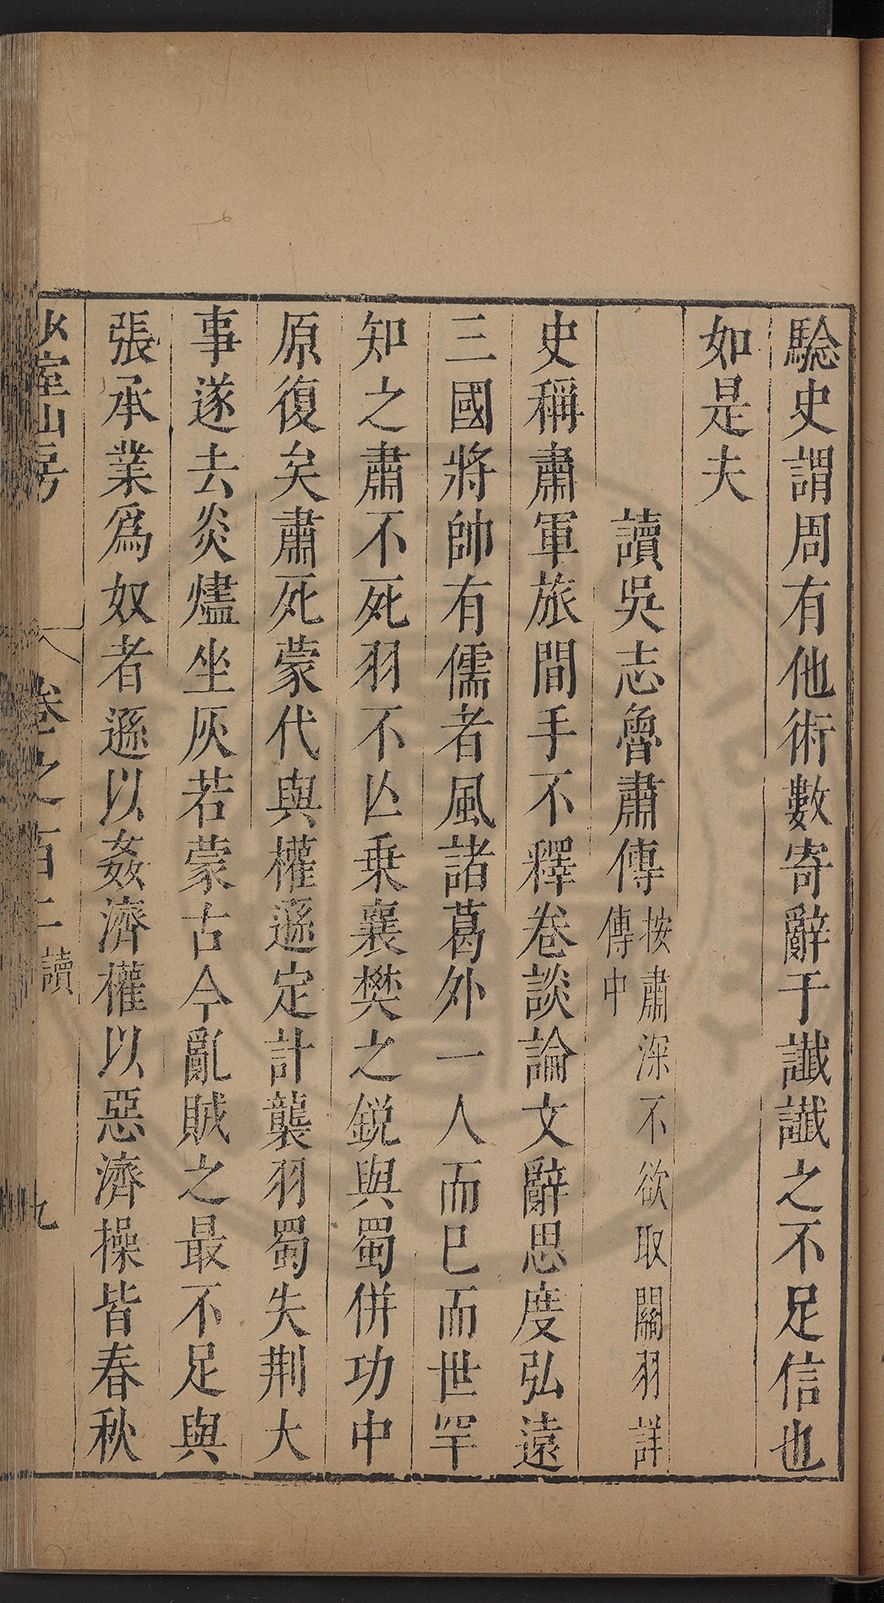 驗史謂周有他術數寄辭于讖讖之不足信也
如是夫
讀吳志魯肅傳按肅深不欲取關羽詳
傳中
史稱肅軍旅間手不釋卷談論文辭思度弘遠
三國將帥有儒者風諸葛外一人而巳而世罕
知之肅不死羽不亾乗襄樊之鋭與蜀併功中
原復矣肅死蒙代與權遜定計襲羽蜀失荆大
事遂去炎燼坐灰若蒙古今亂賊之最不足與
張承業爲奴者遜以姦濟權以惡濟操皆春秋
室山房
卷之百二 讀 九